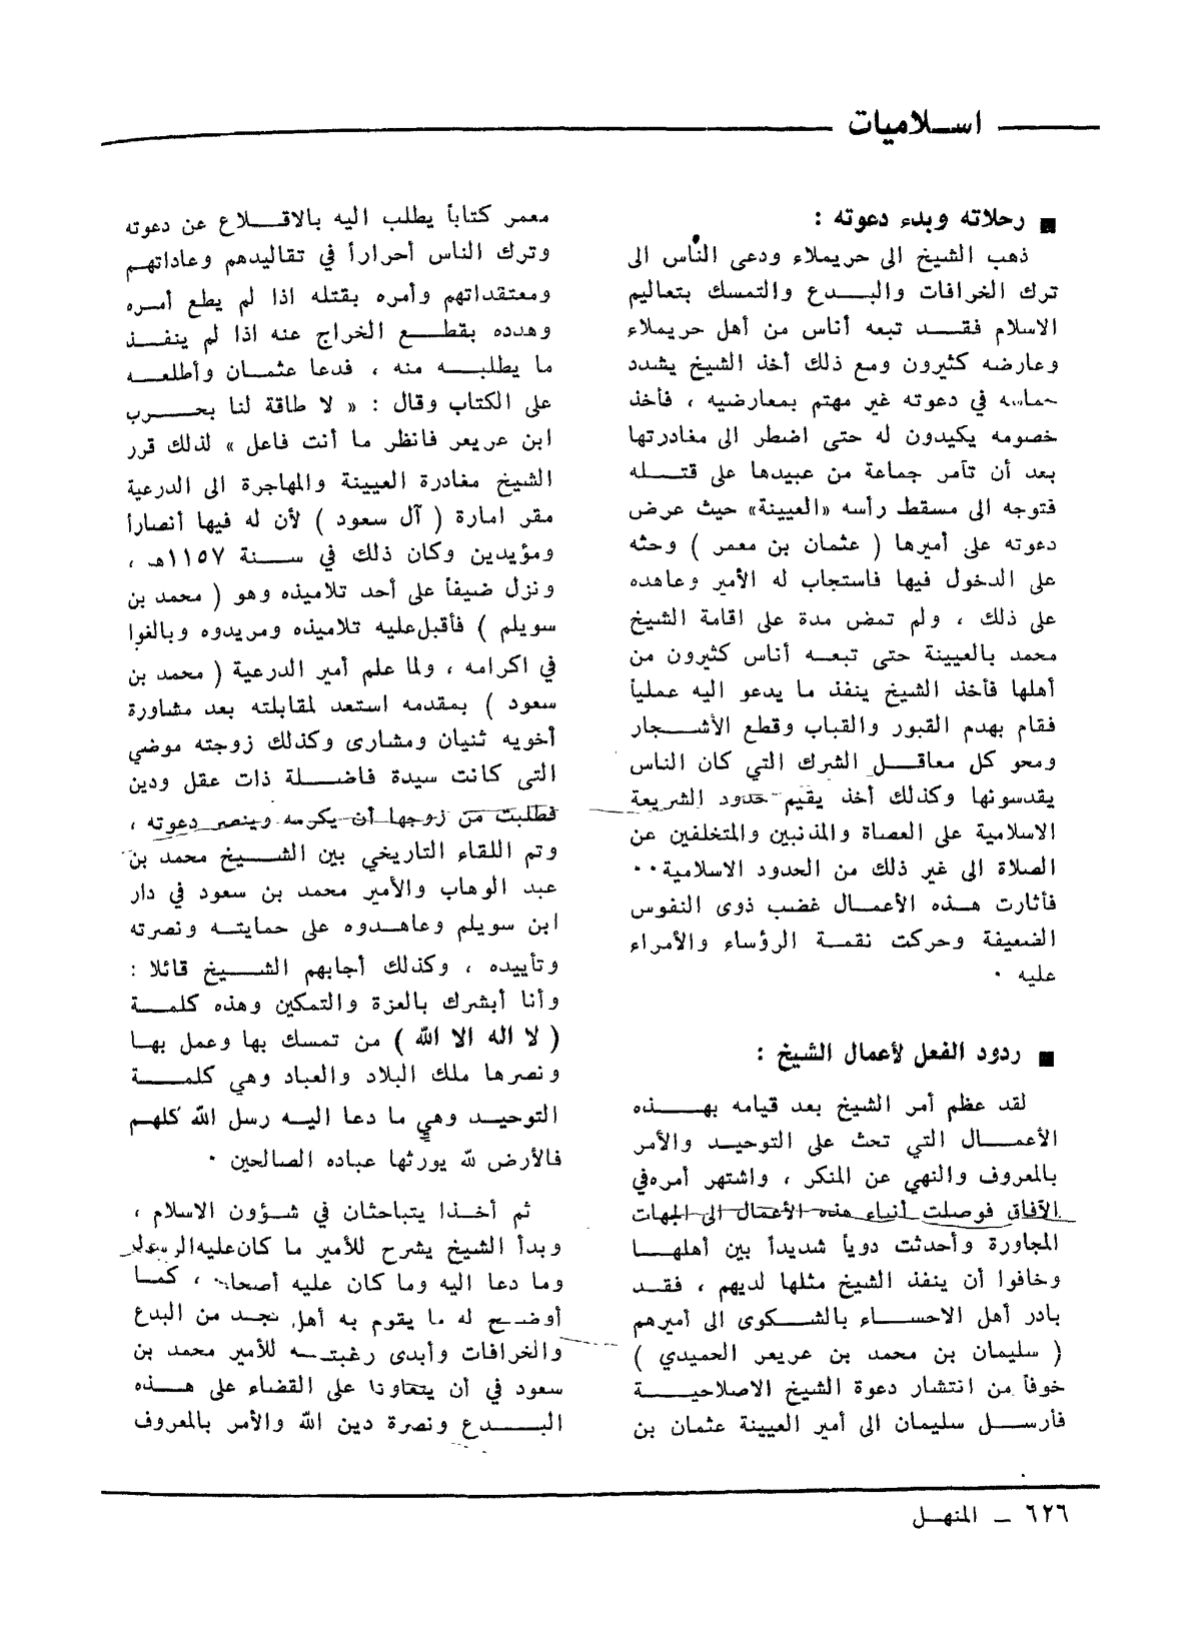 اسلاميات
■ رحلاته وبدء دعوته :
ذهب الشيخ الى حريملاء ودعى الناس الى
ترك الخرافات والبدع والتمسك بتعاليم
الاسلام فقد تبعه أناس من أهل حريملاء
وعارضه كثيرون ومع ذلك أخذ الشيخ يشدد
في دعوته غير مهتم بمعارضيه ، فأخذ
خصومه يكيدون له حتى اضطر الى مغادرتها
بعد أن تآمر جماعة من عبيدها على قتله
فتوجه الى مسقط رأسه «العيينة» حيث عرض
دعوته على أميرها ( عثمان بن معمر ) وحثه
على الدخول فيها فاستجاب له الأمير وعاهده
على ذلك ، ولم تمض مدة على اقامة الشيخ
محمد بالعيينة حتى تبعه أناس كثيرون من
أهلها فأخذ الشيخ ينفذ ما يدعو اليه عملياً
فقام بهدم القبور والقباب وقطع الأشجار
ومحو كل معاقل الشرك التي كان الناس
يقدسونها وكذلك أخذ يقيم حدود الشريعة
الاسلامية على العصاة والمذنبين والمتخلفين عن
الصلاة الى غير ذلك من الحدود الاسلامية..
فأثارت هذه الأعمال غضب ذوى النفوس
الضعيفة وحركت نقمة الرؤساء والأمراء
عليه .
■ ردود الفعل لأعمال الشيخ :
لقد عظم أمر الشيخ بعد قيامه بهذه
الأعمال التي تحث على التوحيد والأمر
بالمعروف والنهي عن المنكر ، واشتهر أمره في
الآفاق فوصلت أنباء هذه الأعمال الى الجهات
المجاورة وأحدثت دوياً شديداً بين أهلها
وخافوا أن ينفذ الشيخ مثلها لديهم ، فقد
بادر أهل الاحساء بالشكوى الى أميرهم
( سليمان بن محمد بن عريعر الحميدي )
خوفاً من انتشار دعوة الشيخ الاصلاحية
فأرسل سليمان الى أمير العيينة عثمان بن
معمر كتاباً يطلب اليه بالاقلاع عن دعوته
وترك الناس أحراراً في تقاليدهم وعاداتهم
ومعتقداتهم وأمره بقتله اذا لم يطع أمره
وهدده بقطع الخراج عنه اذا لم ينفذ
ما يطلبه منه ، فدعا عثمان وأطلعه
على الكتاب وقال : « لا طاقة لنا بحرب
ابن عريعر فانظر ما أنت فاعل » لذلك قرر
الشيخ مغادرة العيينة والمهاجرة الى الدرعية
مقر امارة ( آل سعود ) لأن له فيها أنصاراً
ومؤيدين وكان ذلك في سنة ١١٥٧هـ ،
ونزل ضيفاً على أحد تلاميذه وهو ( محمد بن
سويلم ) فأقبل عليه تلاميذه ومريدوه وبالغوا
في اكرامه ، ولما علم أمير الدرعية ( محمد بن
سعود ) بمقدمه استعد لمقابلته بعد مشاورة
أخويه ثنيان ومشارى وكذلك زوجته موضي
التى كانت سيدة فاضلة ذات عقل ودين
فطلبت من زوجها أن يكرمه وينصر دعوته ،
وتم اللقاء التاريخي بين الشيخ محمد بن
عبد الوهاب والأمير محمد بن سعود في دار
ابن سويلم وعاهدوه على حمايته ونصرته
وتأييده ، وكذلك أجابهم الشيخ قائلا :
وأنا أبشرك بالعزة والتمكين وهذه كلمة
( لا اله الا الله ) من تمسك بها وعمل بها
ونصرها ملك البلاد والعباد وهي كلمة
التوحيد وهي ما دعا اليه رسل الله كلهم
فالأرض لله يورثها عباده الصالحين .
ثم أخذا يتباحثان في شؤون الاسلام ،
وبدأ الشيخ يشرح للأمير ما كان عليه الرسول
وما دعا اليه وما كان عليه أصحابه ، كما
أوضح له ما يقوم به أهل نجد من البدع
والخرافات وأبدى رغبته للأمير محمد بن
سعود في أن يتعاونا على القضاء على هذه
البدع ونصرة دين الله والأمر بالمعروف
٦٢٦ ــ المنهل